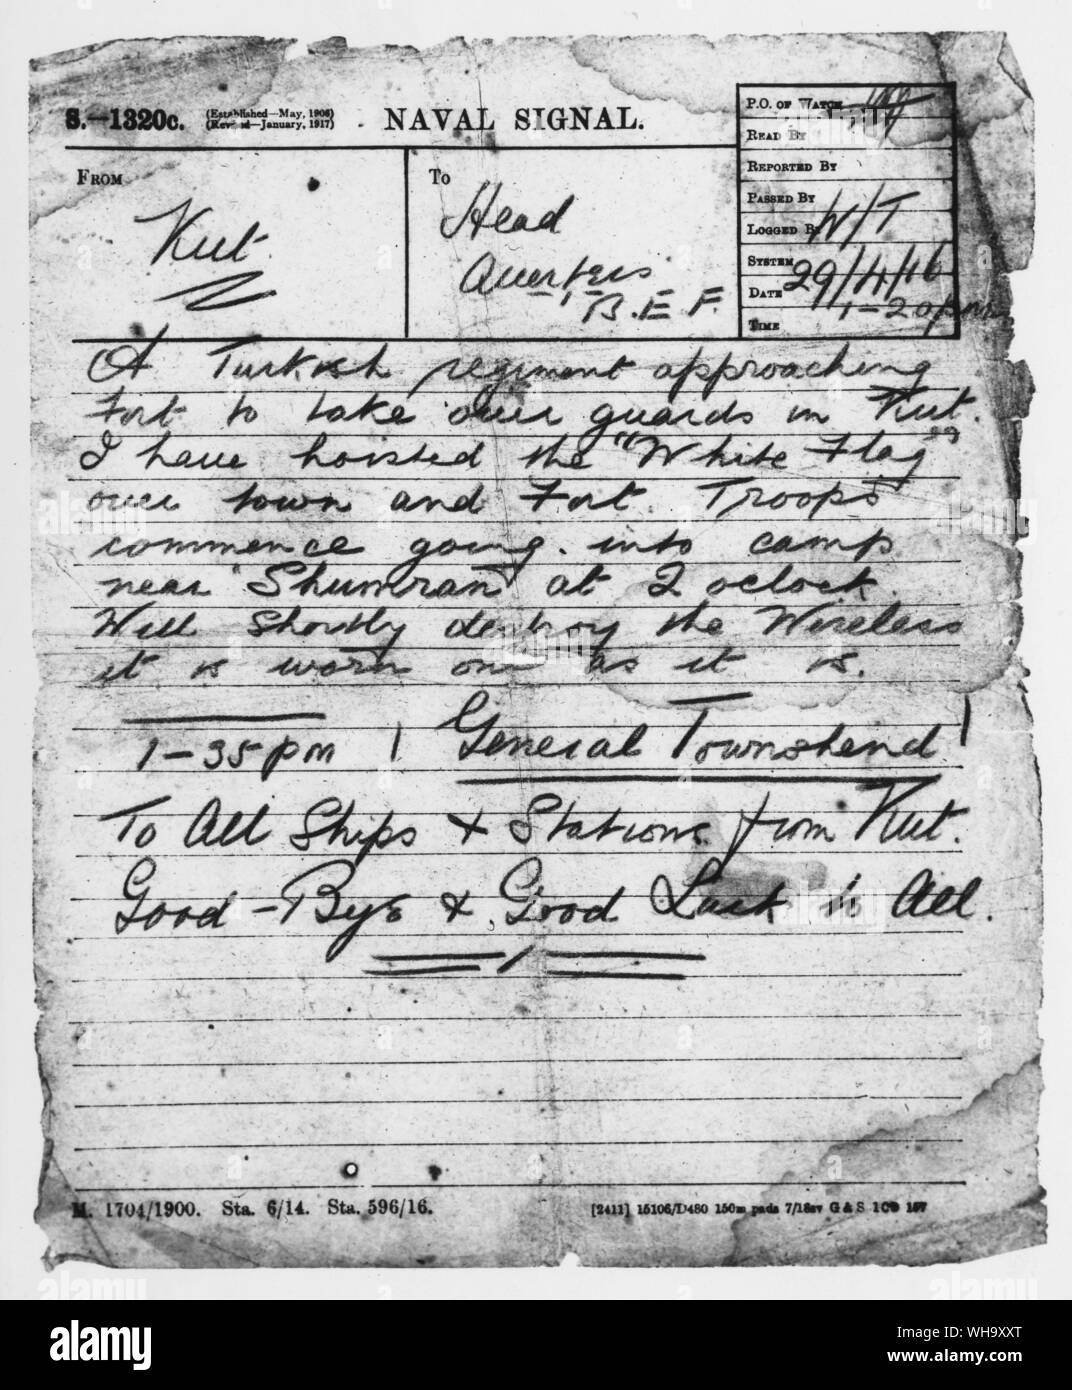 S.—1320c. (Established—May, 1906)
(Revised—January, 1917)
NAVAL SIGNAL.
P.O. OF WATCH
READ BY
REPORTED BY
PASSED BY
LOGGED BY W/T
SYSTEM
DATE 29/4/16
TIME 1-20pm
FROM
Kut.
To
Head
Quarters
B.E.F.
A Turkish regiment approaching
Fort to take over guards in Kut.
I have hoisted the "White Flag"
over town and Fort. Troops
commence going into camp
near Shumran at 2 oclock.
Will Shortly destroy the Wireless
it is worn out as it is.
1-35pm General Townshend
To All Ships & Stations from Kut.
Good-Bye & Good Luck to All.
M. 1704/1900. Sta. 6/14. Sta. 596/16.
[2411] 15106/D480 150m pads 7/18sv G & S
alamy
Image ID: WH9XXT
www.alamy.com